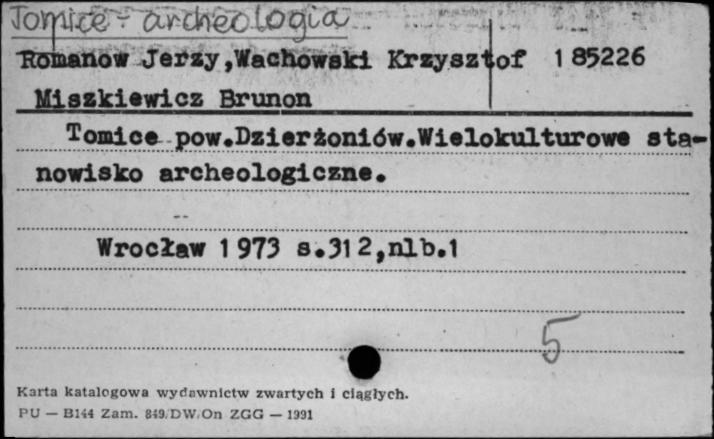 Tomice - archeologia
Romanow Jerzy,Wachowski Krzysztof 185226
Miszkiewicz Brunon
Tomice pow.Dzierżoniów.Wielokulturowe sta-
nowisko archeologiczne.
--
Wrocław 1973 s.312,nlb.1
5
Karta katalogowa wydawnictw zwartych i ciągłych.
PU — B144 Zam. 849/DW/On ZGG — 1991